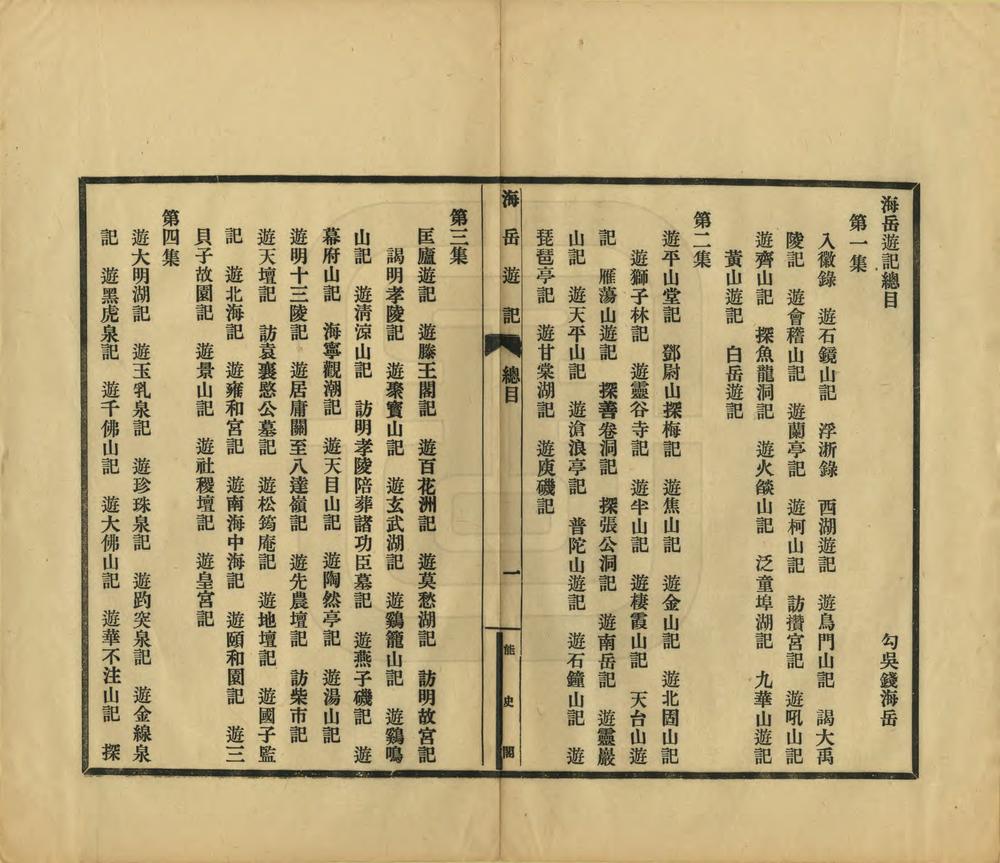 海岳遊記總目　勾吳錢海岳
第一集
入徽錄　遊石鏡山記　浮浙錄　西湖遊記　遊鳥門山記　謁大禹
陵記　遊會稽山記　遊蘭亭記　遊柯山記　訪攢宮記　遊吼山記
遊齊山記　探魚龍洞記　遊火燄山記　泛童埠湖記　九華山遊記
黃山遊記　白岳遊記
第二集
遊平山堂記　鄧尉山探梅記　遊焦山記　遊金山記　遊北固山記
遊獅子林記　遊靈谷寺記　遊牛山記　遊棲霞山記　天台山遊
記　雁蕩山遊記　探善卷洞記　探張公洞記　遊南岳記　遊靈巖
山記　遊天平山記　遊滄浪亭記　普陀山遊記　遊石鐘山記　遊
琵琶亭記　遊甘棠湖記　遊庾磯記
海岳遊記　總目　一　能史閣
第三集
匡廬遊記　遊滕王閣記　遊百花洲記　遊莫愁湖記　訪明故宮記
謁明孝陵記　遊聚寶山記　遊玄武湖記　遊鷄籠山記　遊鷄鳴
山記　遊清涼山記　訪明孝陵陪葬諸功臣墓記　遊燕子磯記　遊
幕府山記　海寧觀潮記　遊天目山記　遊陶然亭記　遊湯山記
遊明十三陵記　遊居庸關至八達嶺記　遊先農壇記　訪柴市記
遊天壇記　訪袁襄愍公墓記　遊松筠庵記　遊地壇記　遊國子監
記　遊北海記　遊雍和宮記　遊南海中海記　遊頤和園記　遊三
貝子故園記　遊景山記　遊社稷壇記　遊皇宮記
第四集
遊大明湖記　遊玉乳泉記　遊珍珠泉記　遊趵突泉記　遊金線泉
記　遊黑虎泉記　遊千佛山記　遊大佛山記　遊華不注山記　探